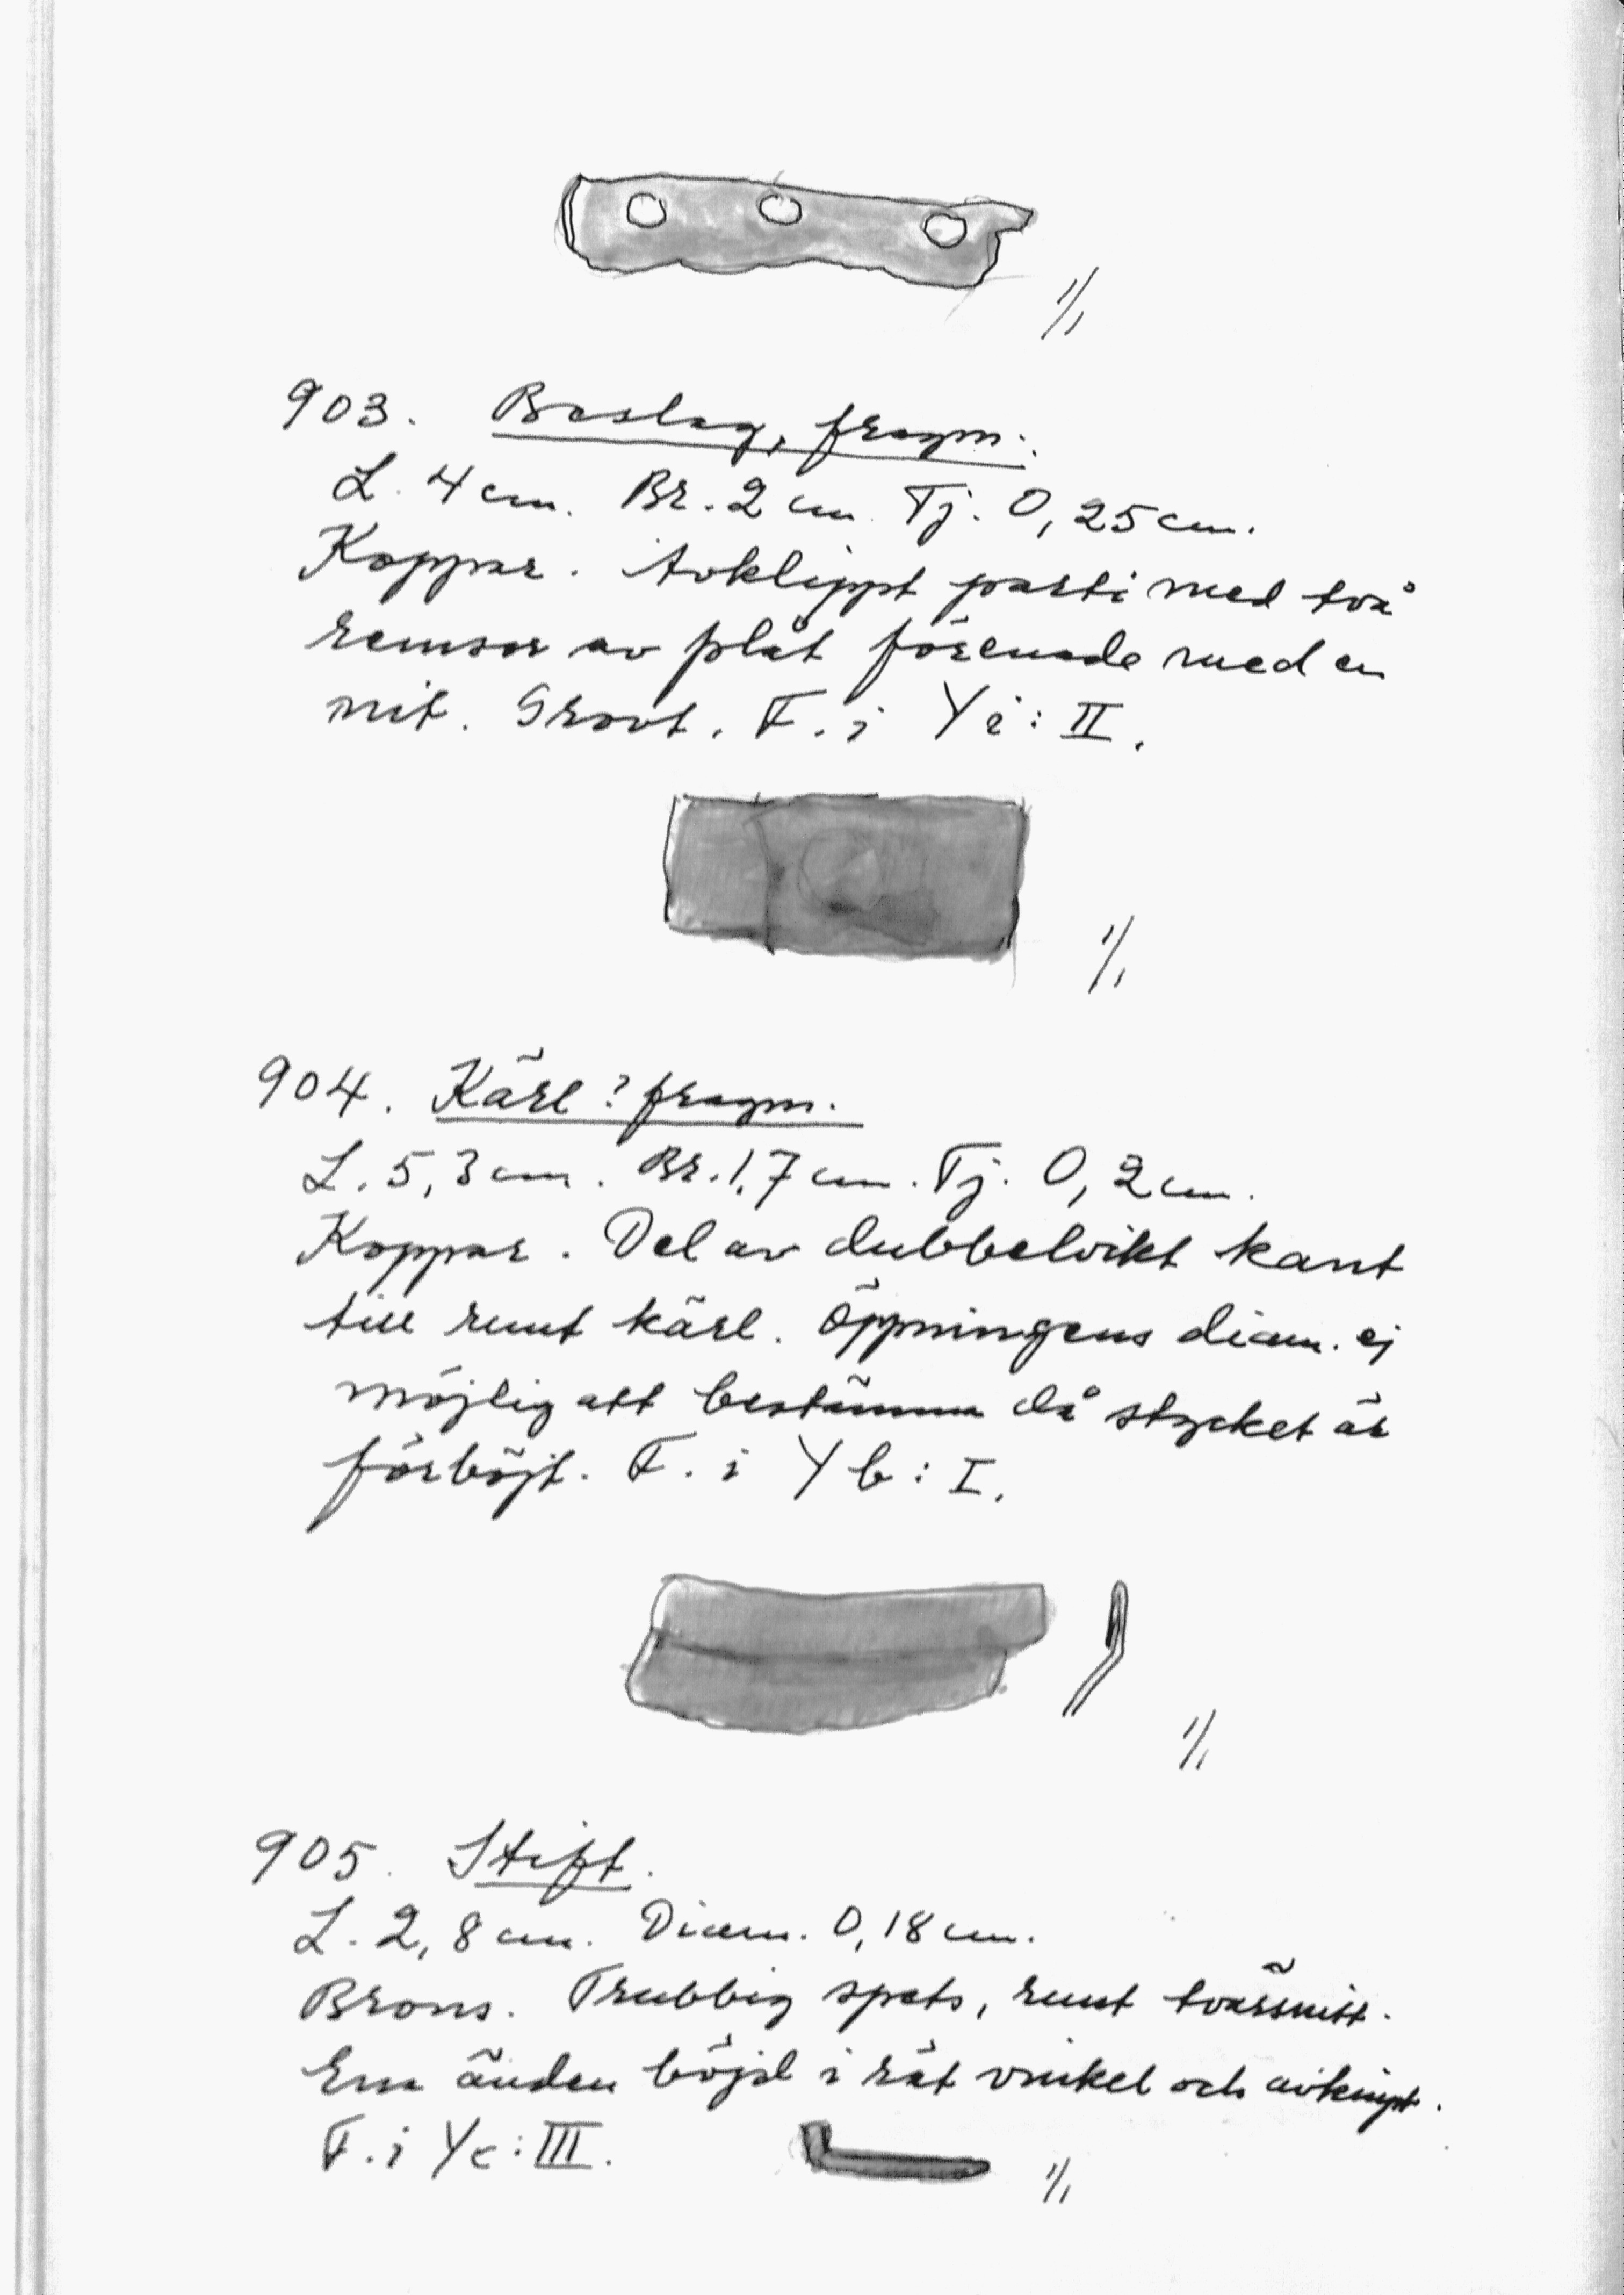 1/1
903. Beslag, fragm.
L. 4 cm. Br. 2 cm. Tj. 0,25 cm.
Koppar. Avklippt parti med två
remsor av plåt förenade med en
nit. Grovt. F. i Yi: II.
1/1
904. Kärl? fragm.
L. 5,3 cm. Br. 1,7 cm. Tj. 0,2 cm.
Koppar. Del av dubbelvikt kant
till runt kärl. Öppningens diam. ej
möjlig att bestämma då stycket är
förböjt. F. i Yb: I.
1/1
905. Stift.
L. 2,8 cm. Diam. 0,18 cm.
Brons. Trubbig spets, runt tvärsnitt.
Ena änden böjd i rät vinkel och avknipt.
F. i Yc: III.
1/1